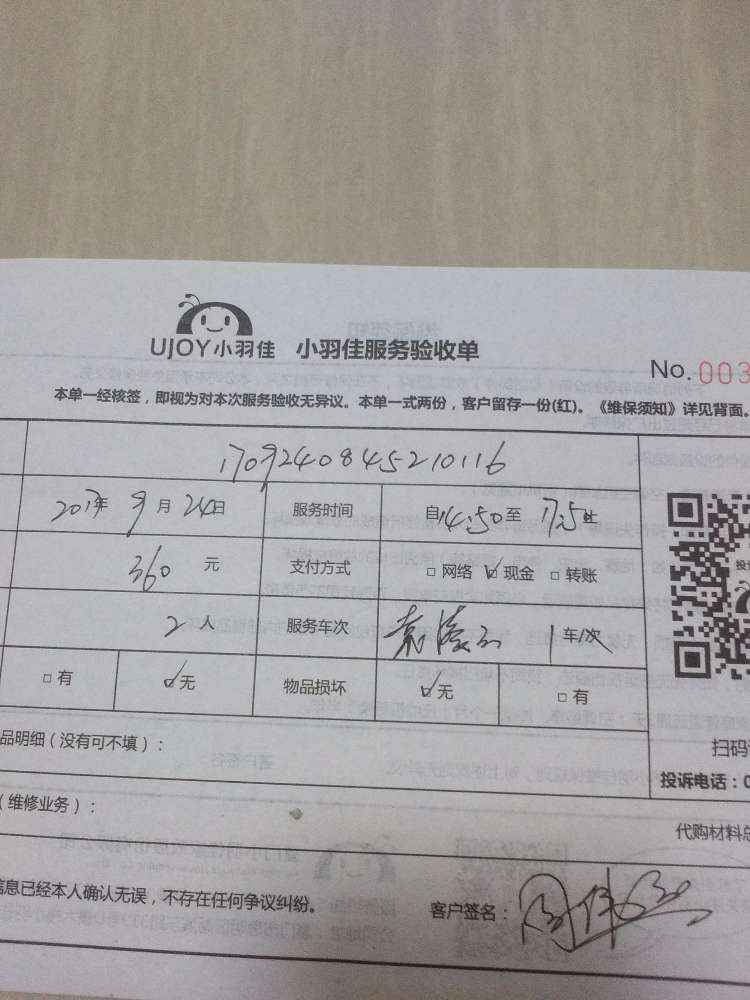 UJOY小羽佳 小羽佳服务验收单
No.003
本单一经核签，即视为对本次服务验收无异议。本单一式两份，客户留存一份(红)。《维保须知》详见背面。
1709240845210116
2017年 9 月 24日 服务时间 自14:50至 17:25止
360 元 支付方式 □网络 ☑现金 □转账
2 人 服务车次 1车/次
□有 ☑无 物品损坏 ☑无 □有
品明细（没有可不填）：
扫码
投诉电话：0
（维修业务）：
代购材料总
信息已经本人确认无误，不存在任何争议纠纷。 客户签名：